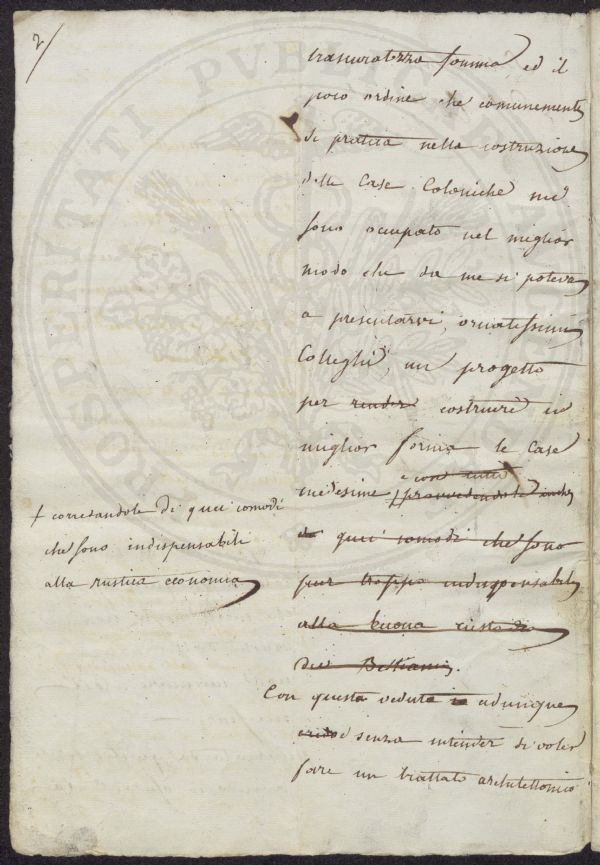 2
trascuratezza somma ed il
poco ordine che comunemente
si pratica nella costruzione
delle Case Coloniche mi
sono occupato nel miglior
modo che da me si poteva
a presentarvi, ornatissimi
Colleghi, un progetto
per render costruire in
miglior forma le Case
medesime + provvedendole anche
e con tutti
di quei comodi che sono
pur troppo indispensabili
alla buona custodia
dei Bestiami.
+ corredandole di quei comodi
che sono indispensabili
alla rustica economia
Con questa veduta adunque
credo senza intender di voler
fare un trattato architettonico
PROSPERITATI PUBLICAE